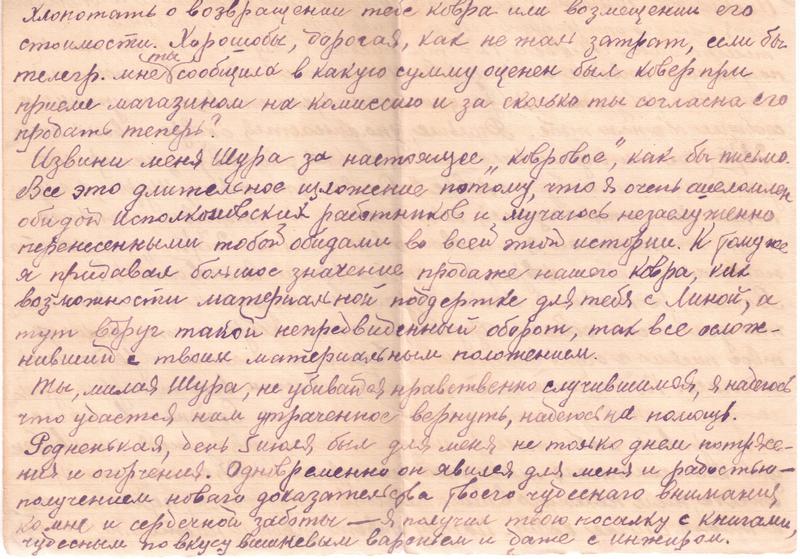 хлопотать о возвращении тебе ковра или возмещении его
стоимости. Хорошобы, дорогая, как не жал затрат, если бы
телегр. мне ты сообщила в какую сумму оценен был ковер при
приеме магазином на комиссию и за сколько ты согласна его
продать теперь?
Извини меня Шура за настоящее "ковровое", как бы письмо.
Все это длительное изложение потому, что я очень ошеломлен
обидой исполкомовских работников и мучаюсь незаслуженно
перенесенными тобой обидами во всей этой истории. К тому же
я придавал большое значение продаже нашего ковра, как
возможности материальной поддержке для тебя с Линой, а
тут вдруг такой непредвиденный оборот, так все ослож-
нивший с твоим материальным положением.
Ты, милая Шура, не убивайся нравственно случившимся, я надеюсь
что удастся нам утраченное вернуть, надеюсь на помощь.
Родненькая, день 5 июля был для меня не только днем потрясе-
ния и огорчения. Одновременно он явился для меня и радостью –
получением новаго доказательства твоего чудеснаго внимания
ко мне и сердечной заботы – я получил твою посылку с книгами,
чудесным по вкусу вишневым вареньем и даже с инжиром.